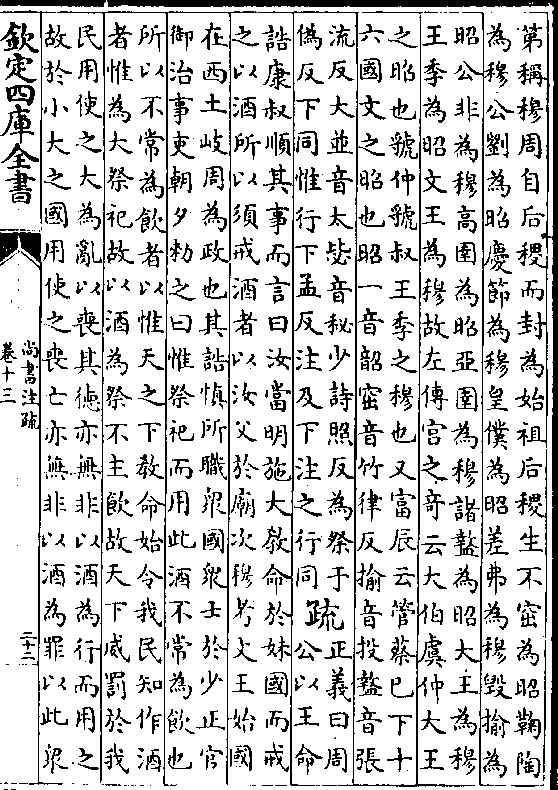 第稱穆周自后稷而封為始祖后稷生不窋為昭鞠陶
為穆公劉為昭慶節為穆皇僕為昭差弗為穆毀揄為
昭公非為穆高圉為昭亞圉為穆諸盩為昭大王為穆
王季為昭文王為穆故左傳宫之奇云大伯虞仲大王
之昭也虢仲虢叔王季之穆也又富辰云管蔡已下十
六國文之昭也昭一音韶窋音竹律反揄音投盩音張
流反大並音太毖音秘少詩照反為祭于
偽反下同惟行下孟反注及下注之行同
疏正義曰周公以王命
誥康叔順其事而言曰汝當明施大教命於妹國而戒
之以酒所以須戒酒者以汝父於廟次穆考文王始國
在西土岐周為政也其誥慎所職衆國衆士於少正官
御治事吏朝夕勑之曰惟祭祀而用此酒不常為飲也
所以不常為飲者以惟天之下教命始令我民知作酒
者惟為大祭祀故以酒為祭不主飲故天下威罰於我
民用使之大為亂以喪其徳亦無非以酒為行而用之
故於小大之國用使之喪亡亦無非以酒為罪以此衆
欽定四庫全書
尚書注疏
卷十三
二十二